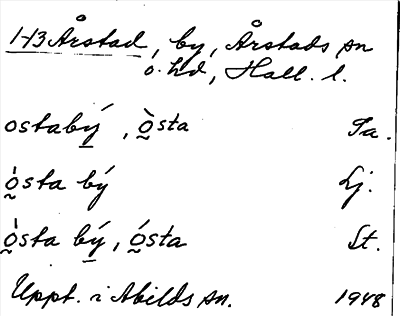 1-13 Årstad, by, Årstads sn
o. hd, Hall. l.
ostabý̱, ò̰sta Ta.
ò̰sta bý Lj.
ò̰sta bý̱, ó̰sta St.
Uppt. i Abilds sn. 1948